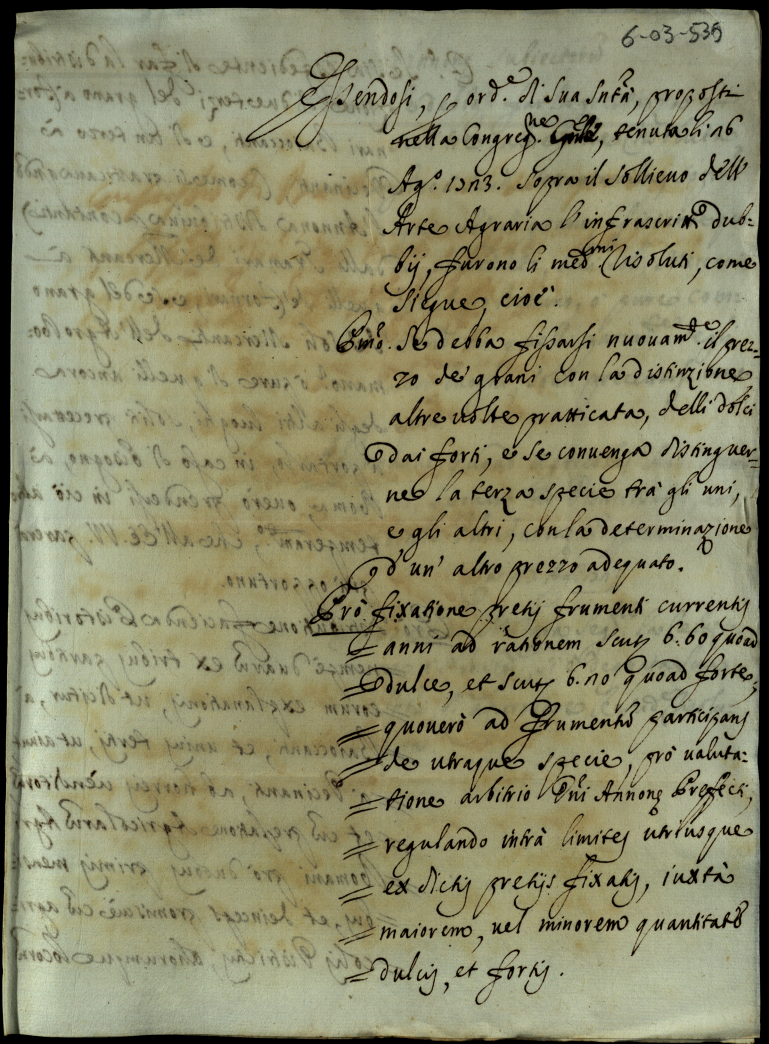 6-03-535
Essendosi, p ord.e di Sua Sntà, proposti
nella Congreg.ne Gnle, tenuta li 16
Ag.o 1713. Sopra il sollievo dell'
Arte Agraria l'infrascritti dub=
bij, furono li med.mi risoluti, come
siegue, cioè.
Pmo. Se debba fissarsi nuovam.te il prez=
zo de' grani con la distinzione
altre volte pratticata, delli dolci
dai forti, e se convenga distinguer=
ne la terza specie trà gli uni,
e gli altri, con la determinazione
d'un' altro prezzo adequato.
Prò fixatione pretij frumenti currentis
= anni ad rationem scut. 6.60 quoad
= dulce, et scut. 6.10 quoad forte,
= quo verò ad frumentū participans
= de utraque specie, prò valuta=
= tione arbitrio Dni Annonę Prefecti,
= regulando intrà limites utriusque
= ex dictis pretijs fixatis, iuxtà
= maiorem, vel minorem quantitatē
= dulcis, et fortis.